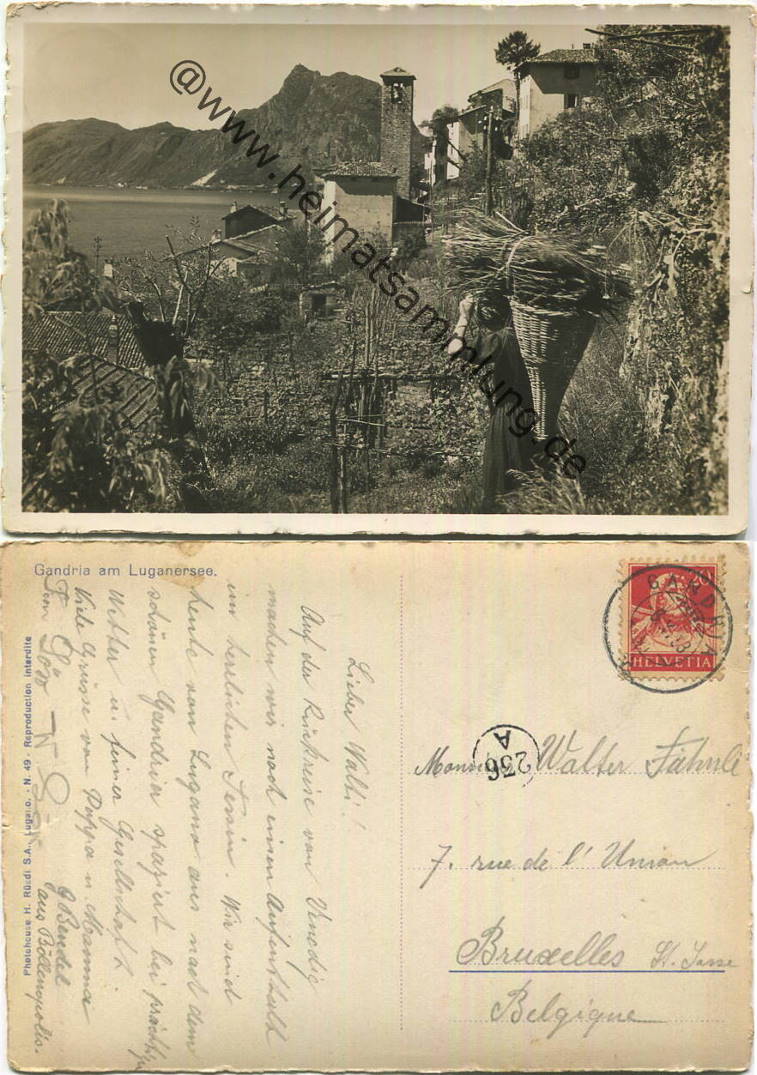 @www.heimatsammlung.de
Gandria am Luganersee.
Lieber Walti!
Auf der Rückreise von Venedig
machen wir noch einen Aufenthalt
im herrlichen Tessin. Wir sind
heute von Lugano aus nach dem
schönen Gandria spaziert bei prächtig
Wetter u. feiner Gesellschaft.
Viele Grüsse von Pappa u Mamma
G Bendel
aus Böllenopolis.
Photohouse H. Rüedi S.A., Lugano. - N. 49 - Reproduction interdite
GANDRIA
20
HELVETIA
236
A
Monsieur Walter Fähnli
7. rue de l'Union
Bruxelles St. Josse
Belgique